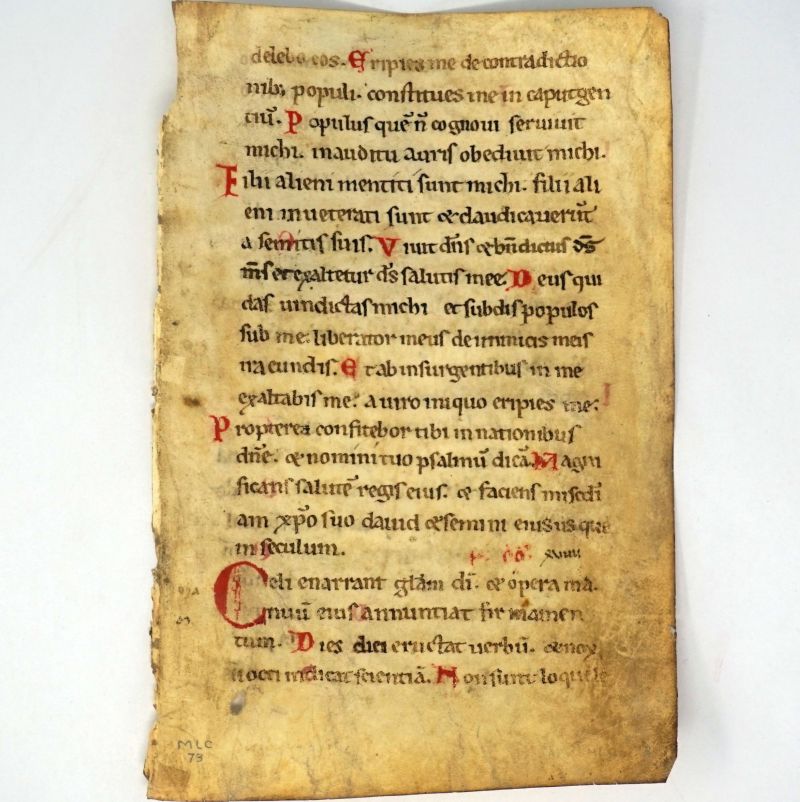 delebo eos. Eripies me de contradictio
nib; populi. constitues me in caput gen
tiū. Populus quē n̄ cognoui seruiuit
michi. in auditu auris obediuit michi.
Filii alieni mentiti sunt michi. filii ali
eni inueterati sunt & claudicauerūt
a semitis suis. Viuit dn̄s & bn̄dictus ds̄
m̄s et exaltetur ds̄ salutis mee. Deus qui
das uindictas michi et subdis populos
sub me: liberator meus de inimicis meis
iracundis. Et ab insurgentibus in me
exaltabis me: a uiro iniquo eripies me:
Propterea confitebor tibi in nationibus
dn̄e. & nomini tuo psalmū dicā. Magni
ficans salutē regis eius. & faciens misc̄di
am xp̄o suo dauid & semini eius usque
in seculum.
xuiii
Celi enarrant glām dī. & opera ma
nuū eius annuntiat firmamen
tum. Dies diei eructat uerbū. & nox
nocti indicat scientiā. Non sunt loquele
MLC
73